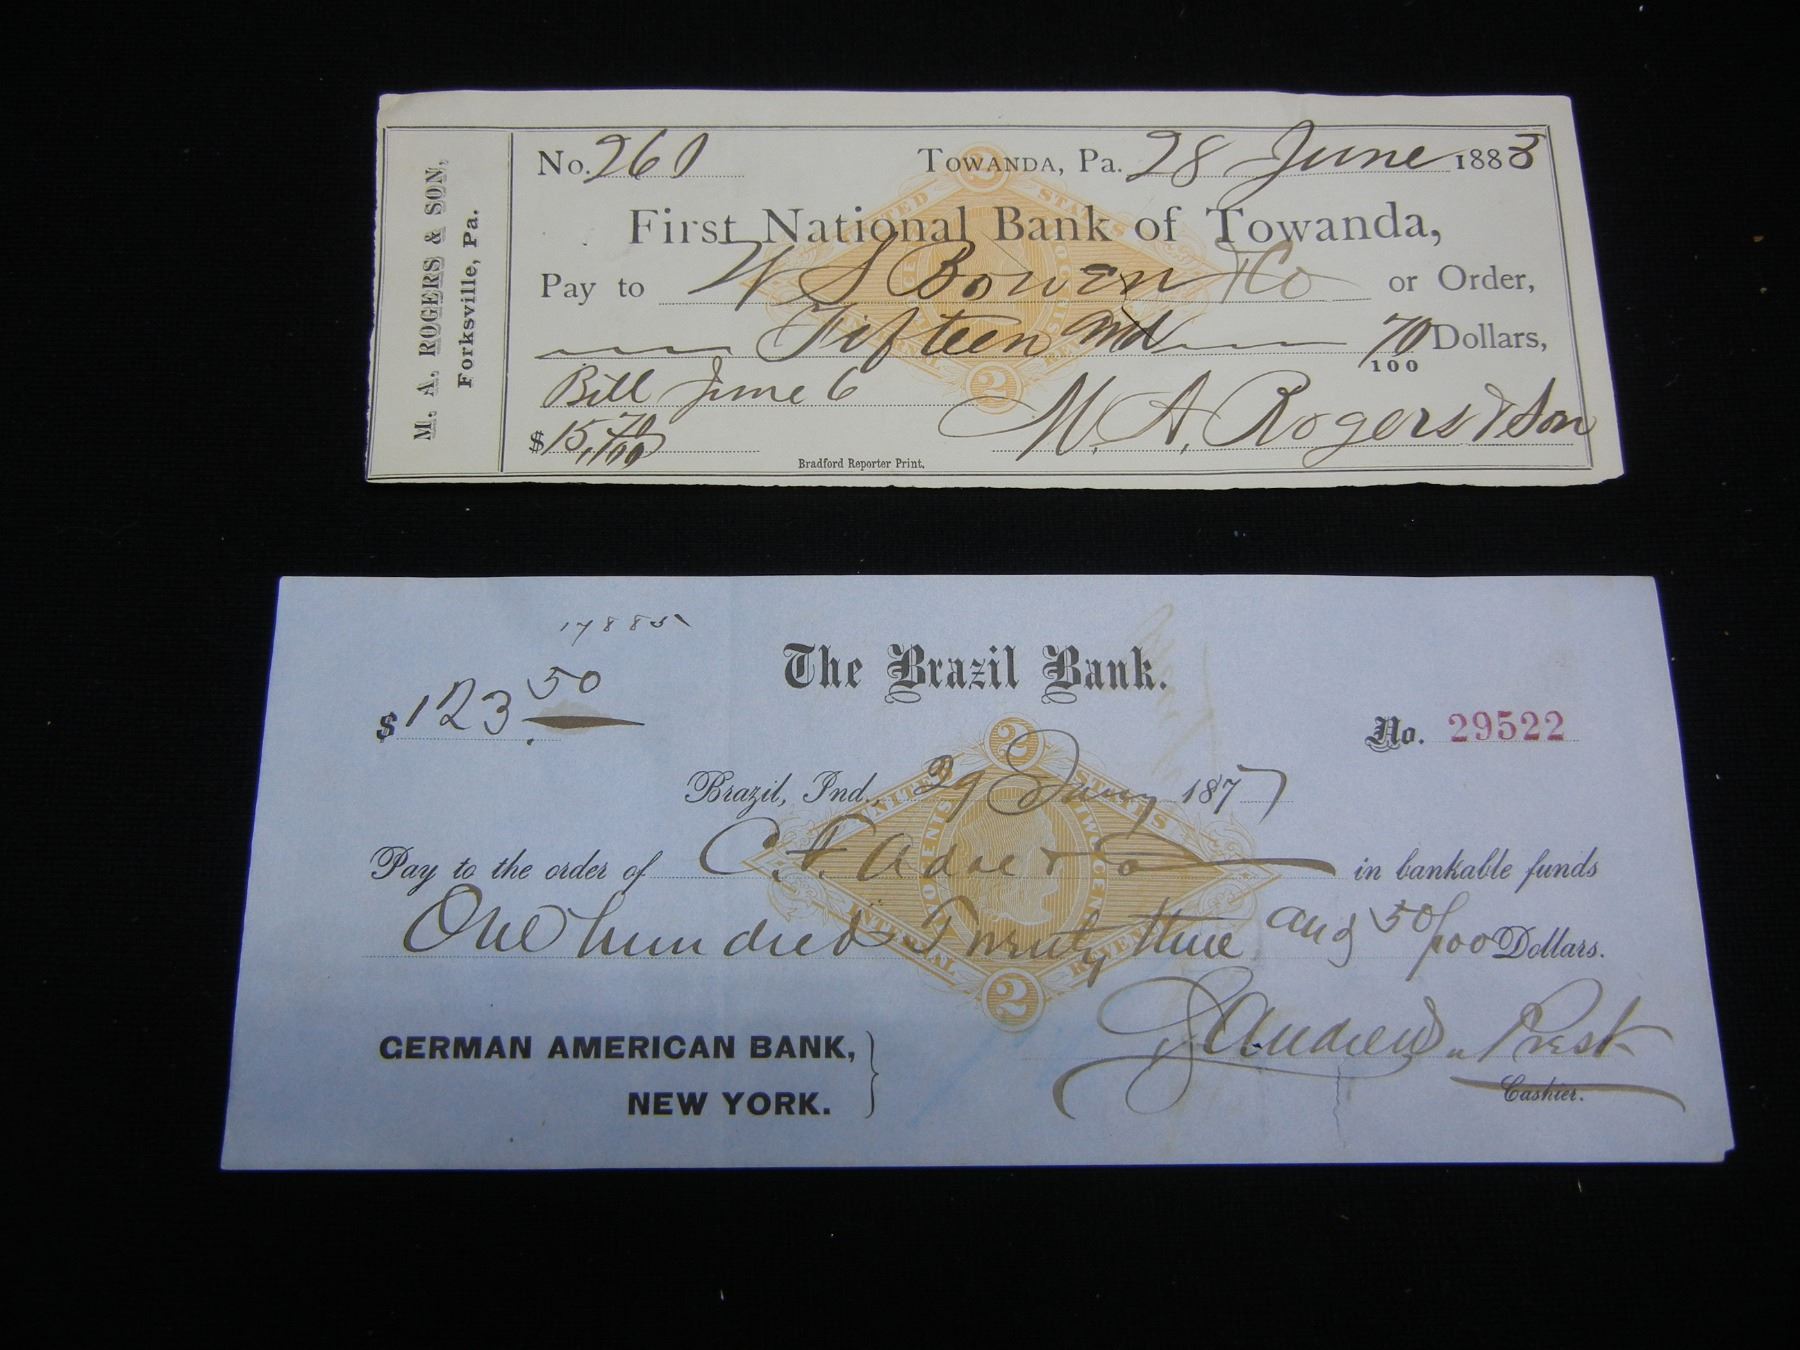 M. A. ROGERS & SON,
Forksville, Pa.
No. 260
TOWANDA, Pa. 28 June 1883
First National Bank of Towanda,
Pay to W S Bowen & Co or Order,
Fifteen and 70/100 Dollars,
Bill June 6
$15,70/100 M. A. Rogers & Son
Bradford Reporter Print.
UNITED STATES
INTERNAL
2
2
17885
The Brazil Bank.
$123.50
No. 29522
Brazil, Ind., 29 Jany 1877
Pay to the order of C. F. & Co in bankable funds
One hundred Twenty three and 50/100 Dollars.
UNITED STATES
TWO CENTS
TWO CENTS
INTERNAL REVENUE
2
2
GERMAN AMERICAN BANK,
NEW YORK.
Andrews Prest
Cashier.